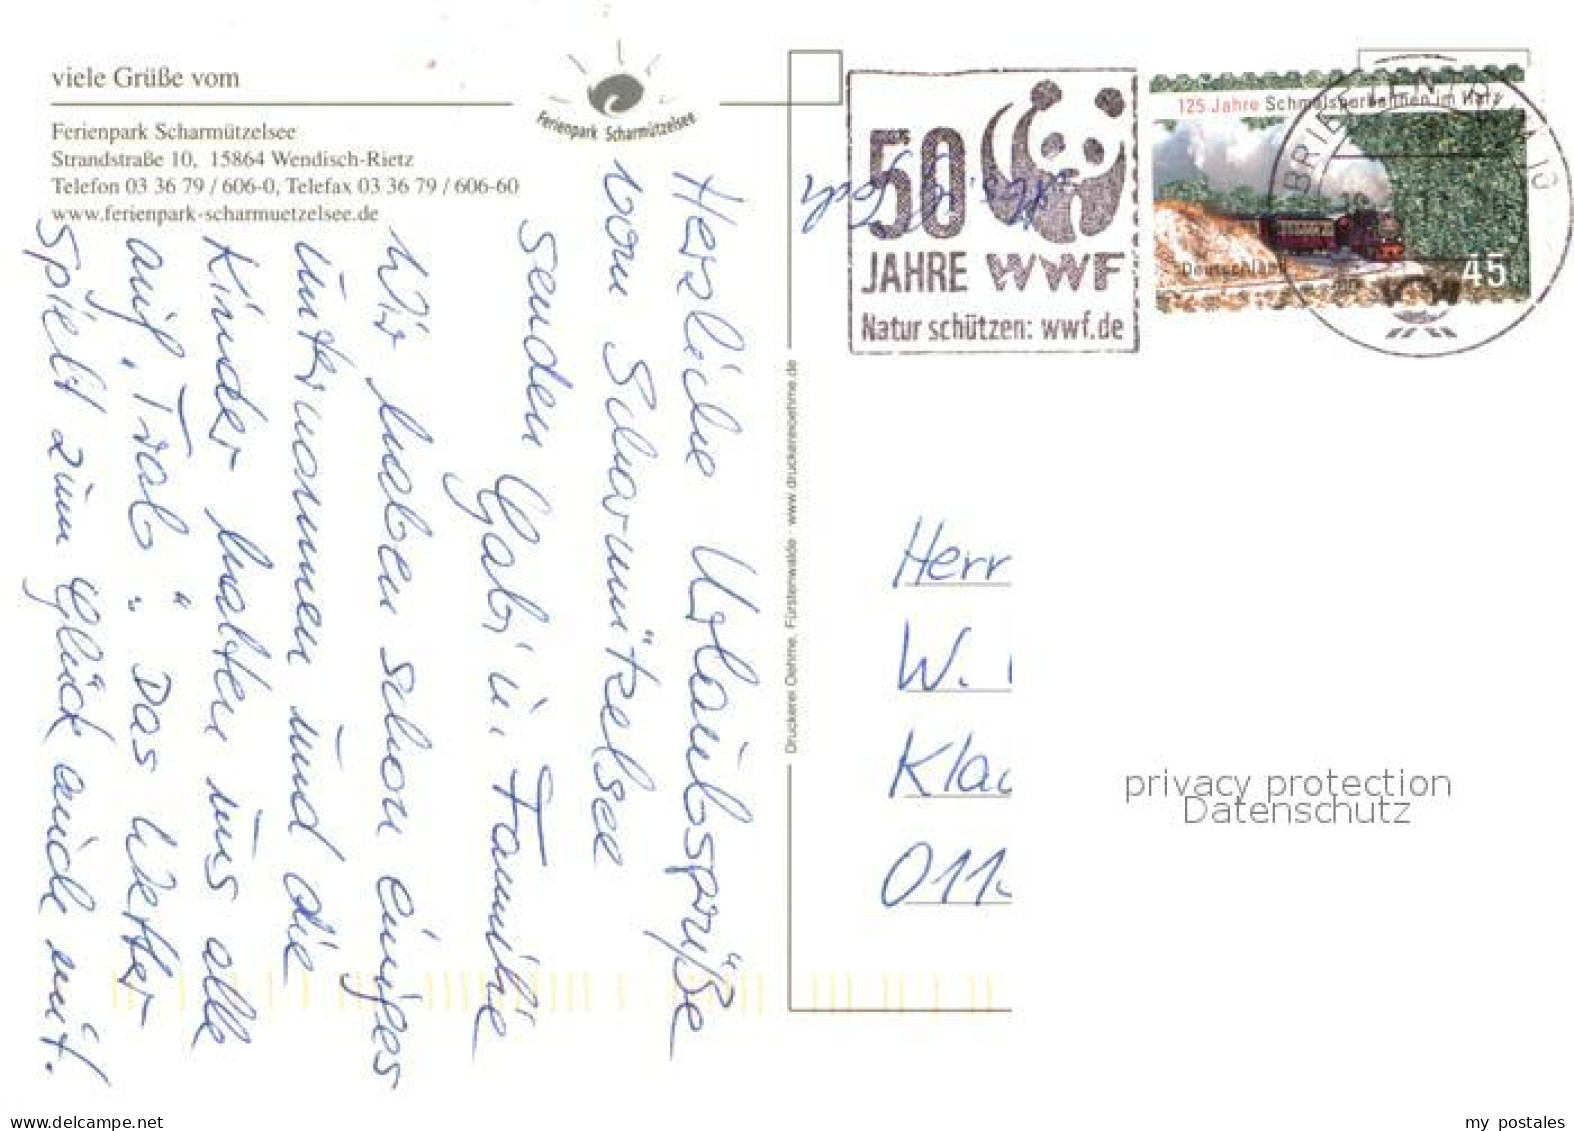 viele Grüße vom
Ferienpark Scharmützelsee
Ferienpark Scharmützelsee
Strandstraße 10, 15864 Wendisch-Rietz
Telefon 03 36 79 / 606-0, Telefax 03 36 79 / 606-60
www.ferienpark-scharmuetzelsee.de
Herzliche Urlaubsgrüße
vom Scharmützelsee
senden Gabi u. Familie
Wir haben schon einiges
unternommen und die
Kinder halten uns alle
auf „Trab". Das Wetter
spielt zum Glück auch mit.
Druckerei Oehme, Fürstenwalde · www.druckereioehme.de
50
JAHRE WWF
Natur schützen: wwf.de
125 Jahre Schmalspurbahnen im Harz
Deutschland
45
BRIEFZENTRUM 10
Herr
W.
Kla
011
privacy protection
Datenschutz
oldthing.de/ankauf.net
my postales